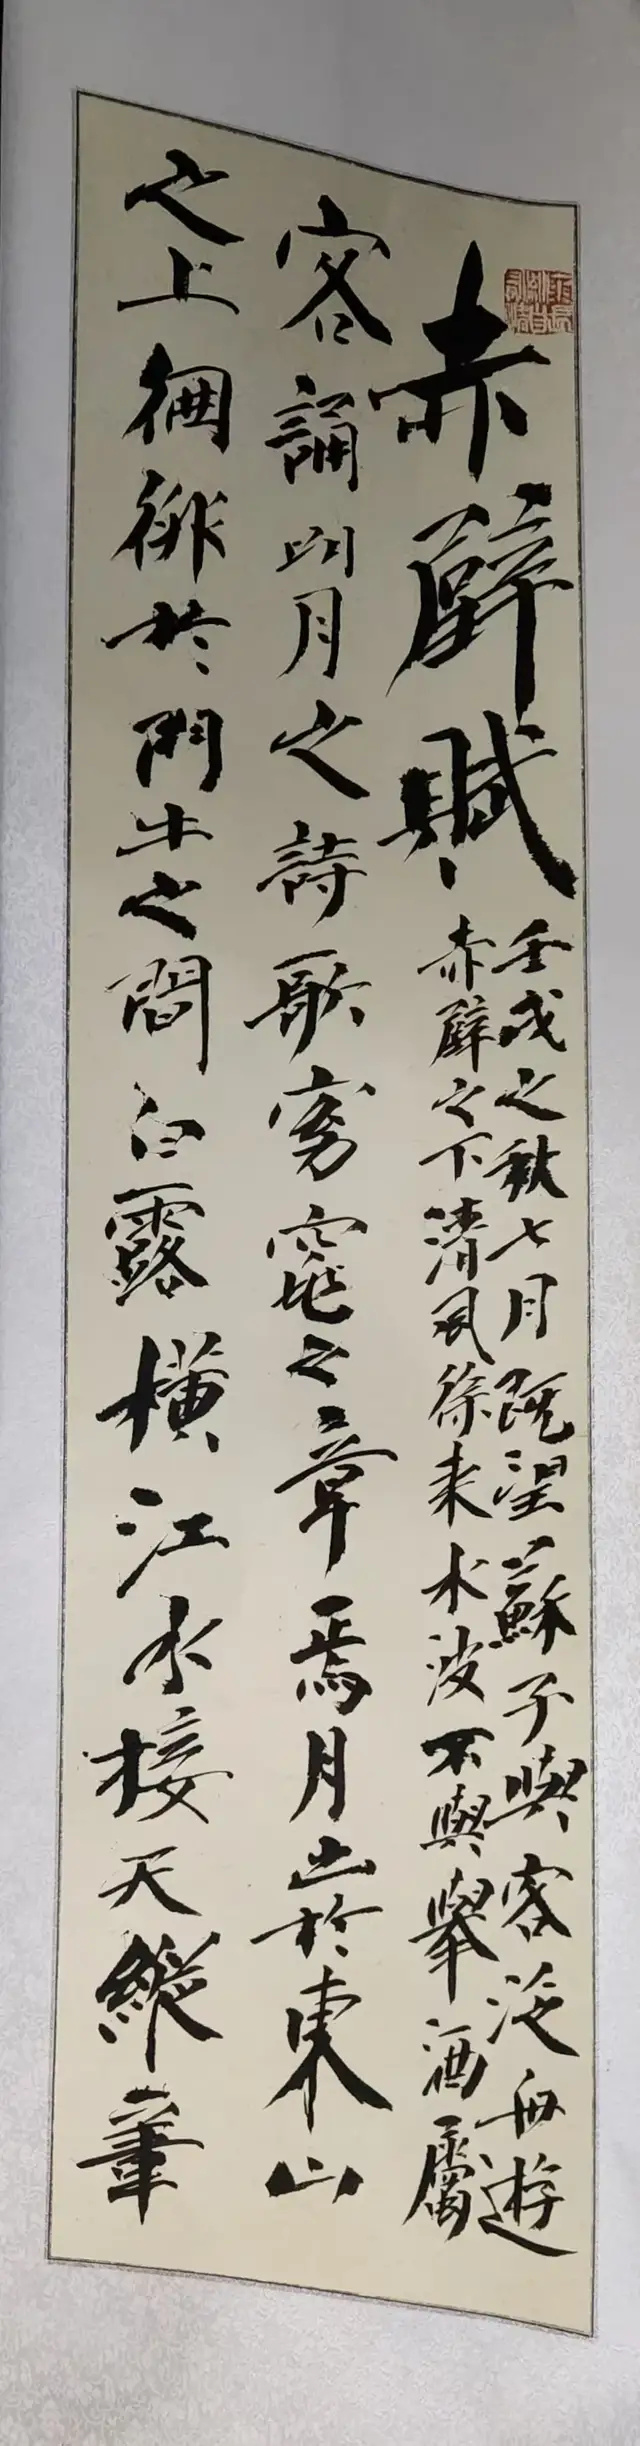 赤壁賦
壬戌之秋七月既望蘇子與客泛舟遊
赤壁之下清風徐來水波不興舉酒屬
客誦明月之詩歌窈窕之章焉月出於東山
之上徊徘於鬥牛之間白露橫江水接天縱葦